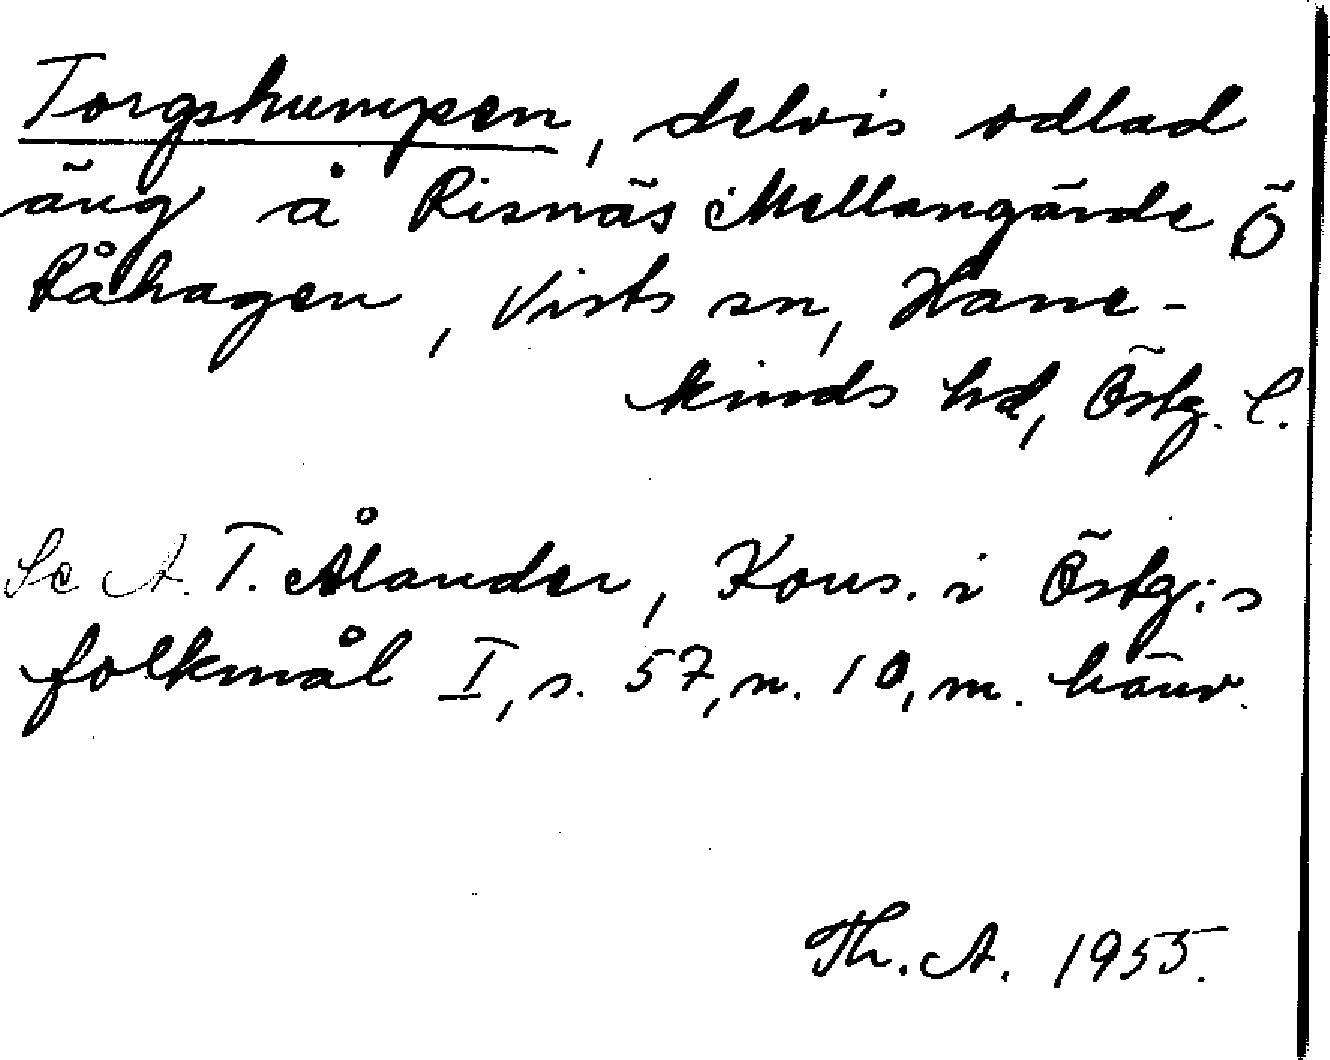 Torgshumpen, delvis odlad
äng å Risnäs Mellangärde Ö
Råhagen, Vists sn, Hane-
kinds hd, Östg. l.
Se A. T. Ålander, Kons. i Östg:s
folkmål I, s. 57, n. 10, m. hänv.
Th. A. 1955.